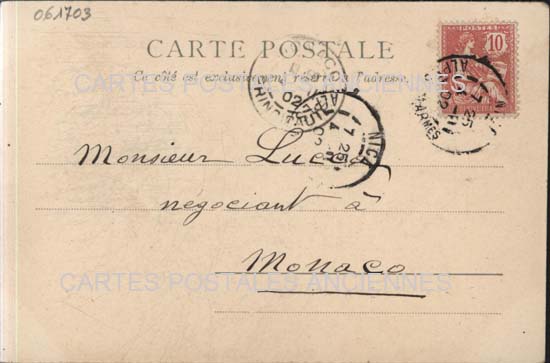 061703
CARTE POSTALE
Ce côté est exclusivement réservé à l'adresse.
10
CARTES POSTALES ANCIENNES
02
17 25
NICE
02
17 25
Monsieur Lucas
négociant à
Monaco
CARTES POSTALES ANCIENNES